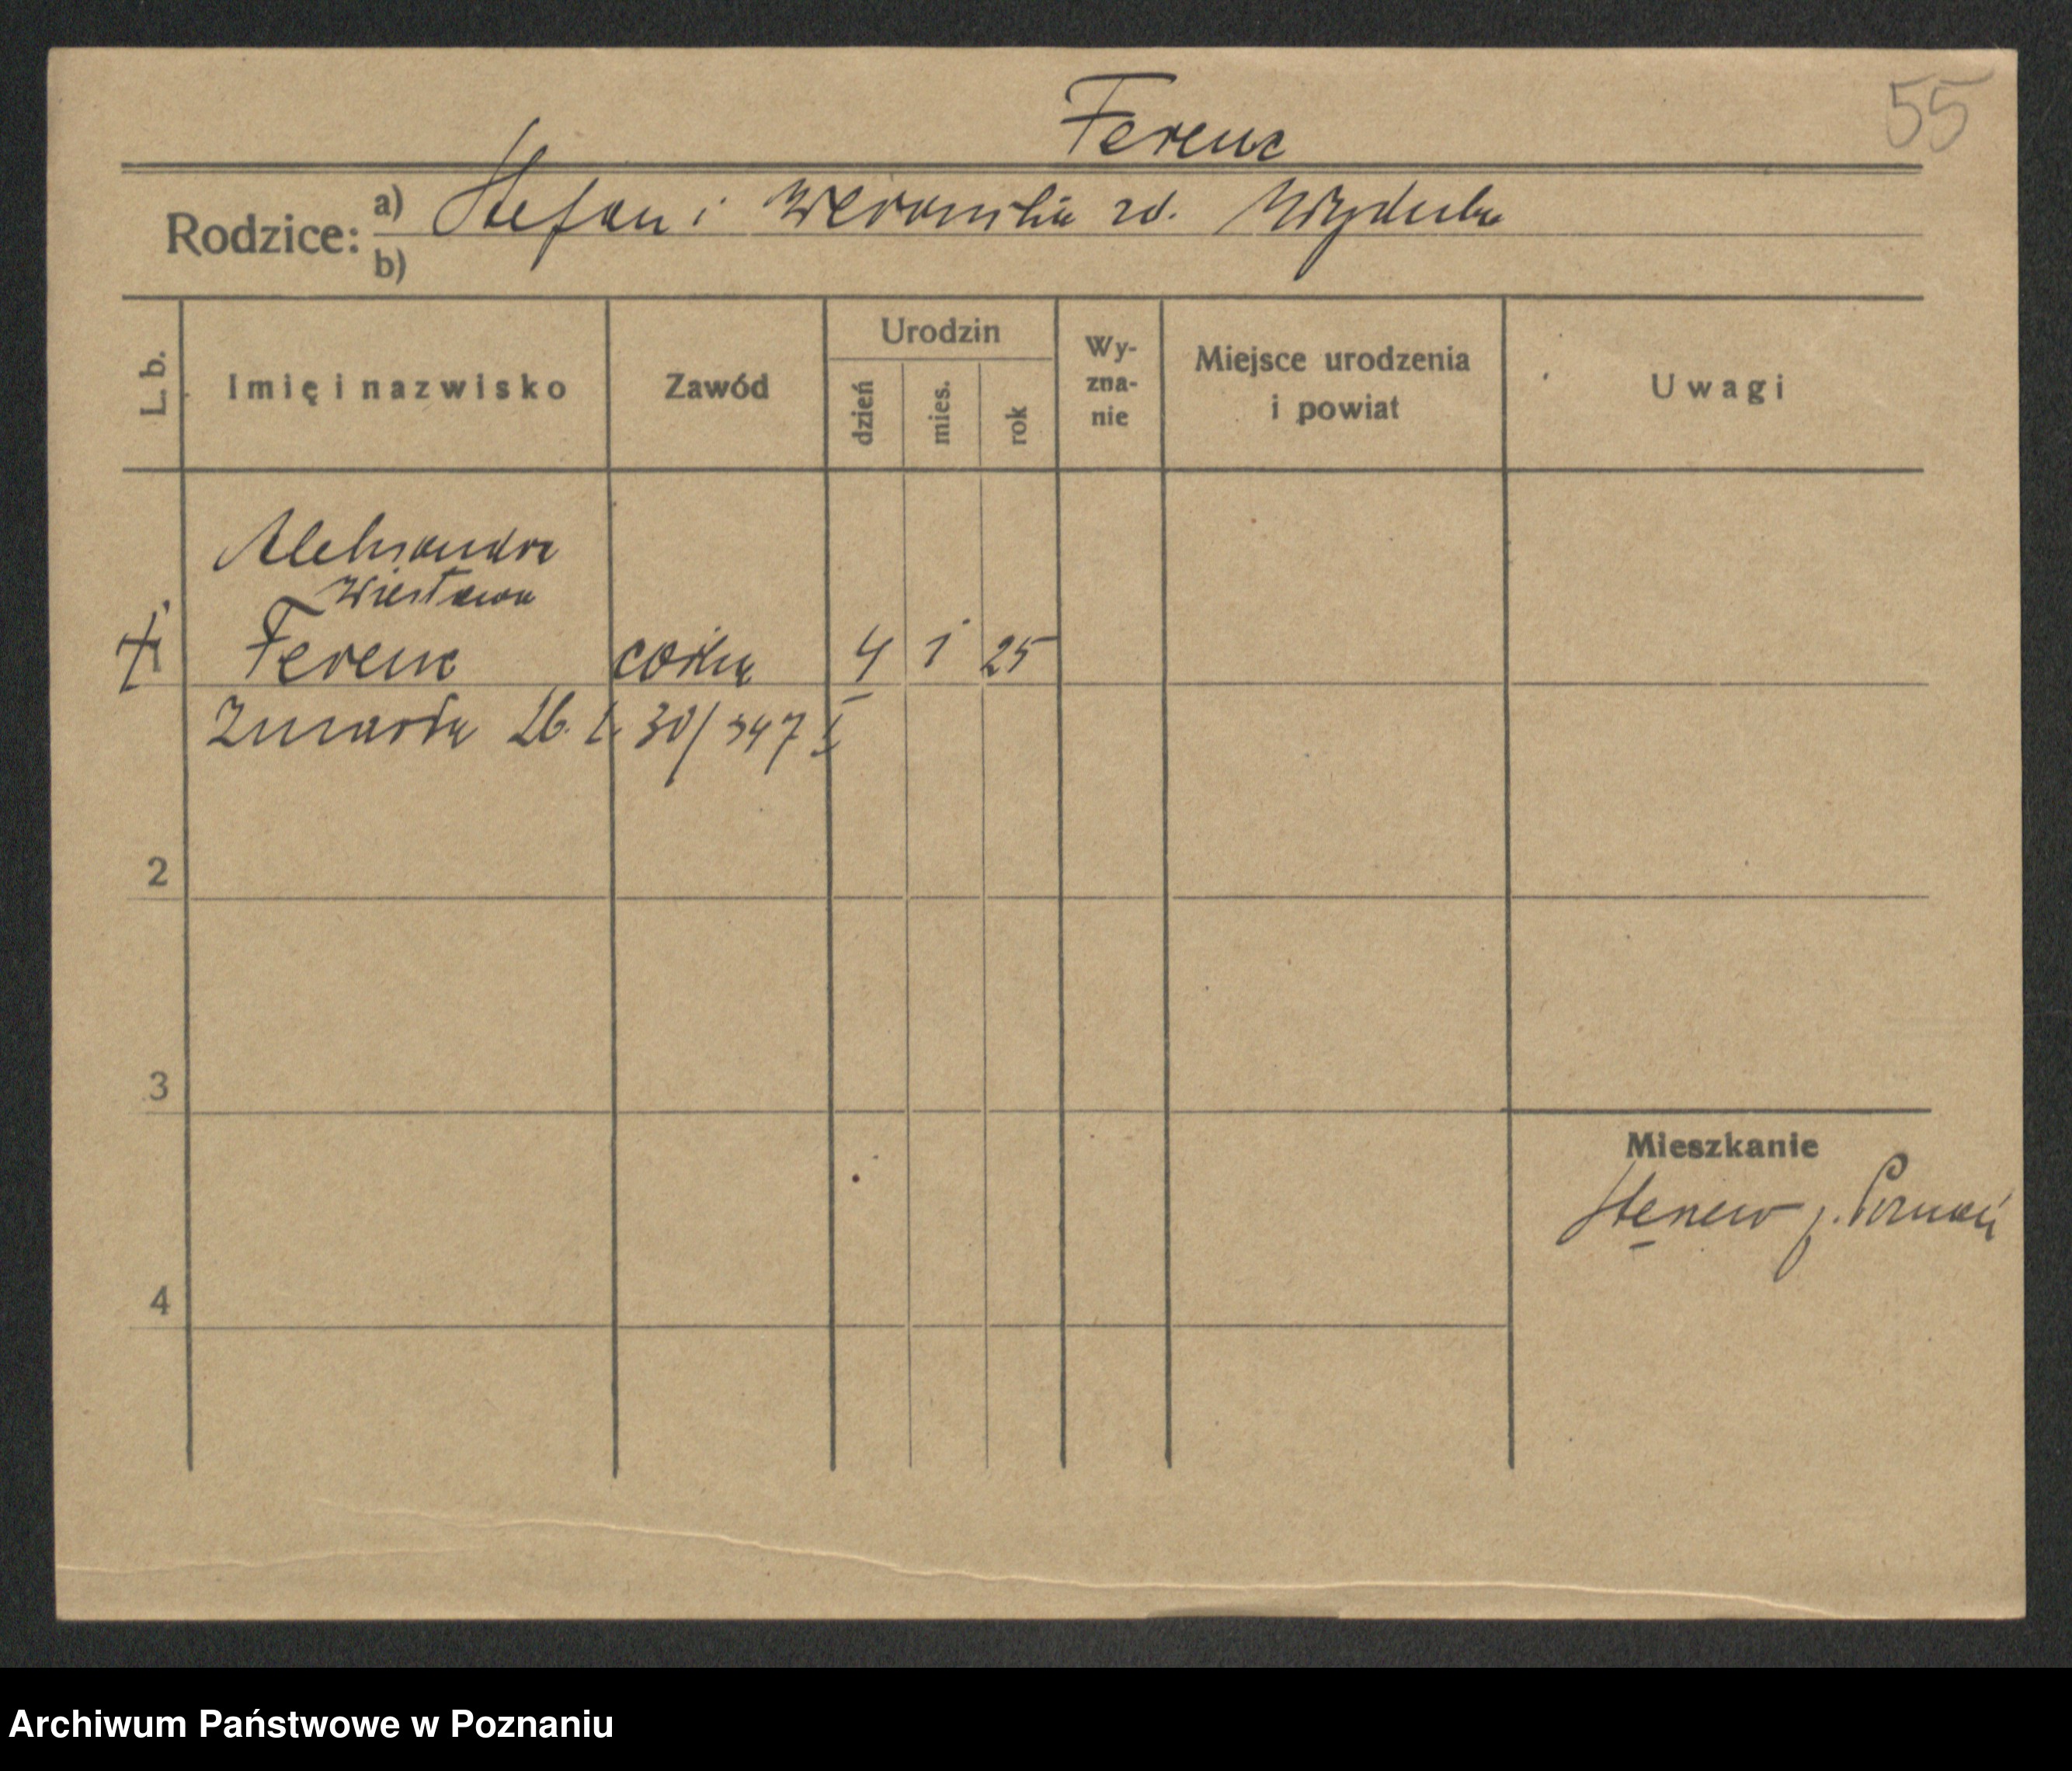 55
Ferenc
Rodzice: a) Stefan i Weronika zd. Wyduba
b)
L. b.
Imię i nazwisko
Zawód
Urodzin
dzień
mies.
rok
Wy-
zna-
nie
Miejsce urodzenia
i powiat
Uwagi
Aleksandra
Wiesława
1 Ferenc córka 4 1 25
Zmarła 26. 2. 30/347 I
2
3
4
Mieszkanie
p. Poznań
Archiwum Państwowe w Poznaniu